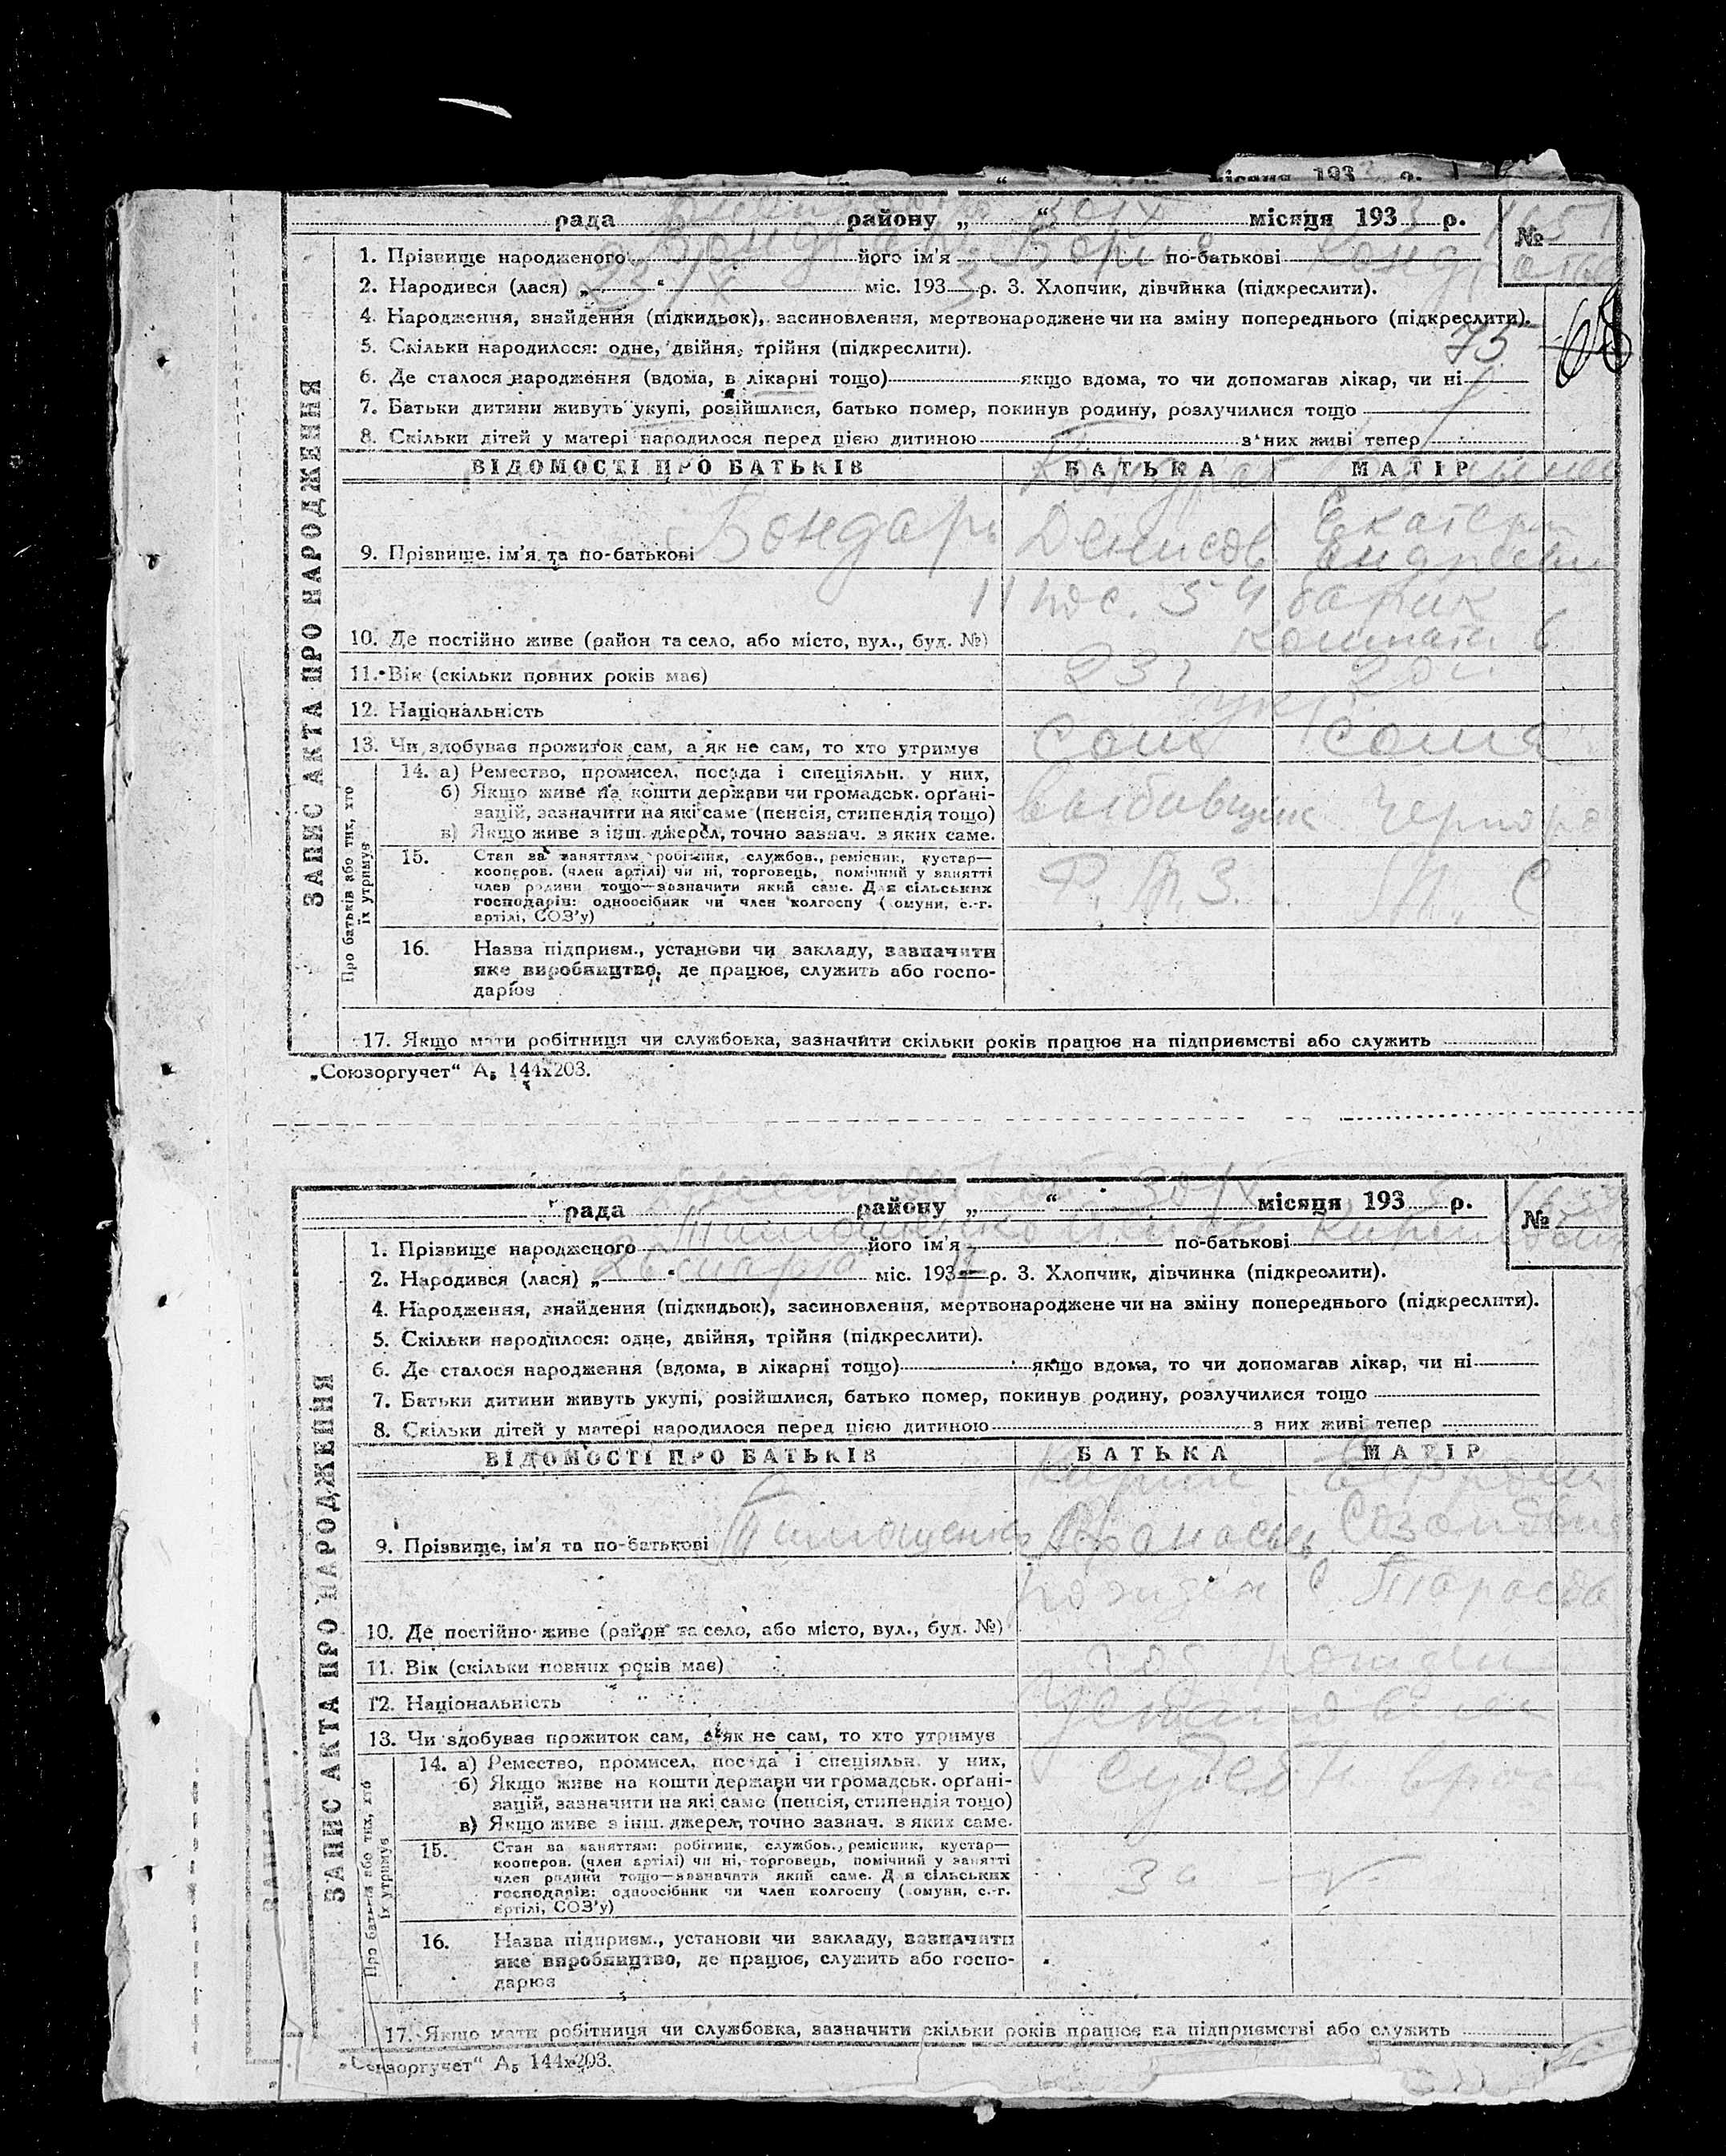 місяця 193 р.
рада району „ “ 30 IX місяця 1933 р. № 1651
1. Прізвище народженого Бондарь його ім'я Борис по-батькові Кондратьев
2. Народився (лася) „ 23 “ IX міс. 1933 р. 3. Хлопчик, дівчинка (підкреслити).
4. Народження, знайдення (підкидьок), засиновлення, мертвонароджене чи на зміну попереднього (підкреслити).
5. Скільки народилося: одне, двійня, трійня (підкреслити). 75 68
6. Де сталося народження (вдома, в лікарні тощо) якщо вдома, то чи допомагав лікар, чи ні
7. Батьки дитини живуть укупі, розійшлися, батько помер, покинув родину, розлучилися тощо
8. Скільки дітей у матері народилося перед цією дитиною з них живі тепер
ВІДОМОСТІ ПРО БАТЬКІВ БАТЬКА МАТІР
Кондрат
Екатерин
9. Прізвище, ім'я та по-батькові Бондарь Денисов Андреевн
11 пос. 54 барак
10. Де постійно живе (район та село, або місто, вул., буд. №) комната 6
11. Вік (скільки повних років має) 23 г 20 л
12. Національність укр
13. Чи здобуває прожиток сам, а як не сам, то хто утримує сам сама
14. а) Ремество, промисел, посада і спеціяльн. у них,
б) Якщо живе на кошти держави чи громадськ. орґані-
зацій, зазначити на які саме (пенсія, стипендія тощо) выбивщик чернор
в) Якщо живе з інш. джерел, точно зазнач. з яких саме.
15. Стан за заняттям: робітник, службов., ремісник, кустар—
кооперов. (член артілі) чи ні, торговець, помічний у занятті
член родини тощо—зазначити який саме. Для сільських
господарів: одноосібник чи член колгоспу (комуни, с.-г.
артілі, СОЗ'у)
16. Назва підприєм., установи чи закладу, зазначити
яке виробництво, де працює, служить або госпо-
дарює
17. Якщо мати робітниця чи службовка, зазначити скільки років працює на підприємстві або служить
ЗАПИС АКТА ПРО НАРОДЖЕННЯ
Про батьків або тих, хто
їх утримує
„Союзоргучет“ А5 144х203.
рада району „ “ 30 IX місяця 1933 р. №
1. Прізвище народженого Тимошенко його ім'я по-батькові Кирил
2. Народився (лася) „ 26 “ марта міс. 193 р. 3. Хлопчик, дівчинка (підкреслити).
4. Народження, знайдення (підкидьок), засиновлення, мертвонароджене чи на зміну попереднього (підкреслити).
5. Скільки народилося: одне, двійня, трійня (підкреслити).
6. Де сталося народження (вдома, в лікарні тощо) якщо вдома, то чи допомагав лікар, чи ні
7. Батьки дитини живуть укупі, розійшлися, батько помер, покинув родину, розлучилися тощо
8. Скільки дітей у матері народилося перед цією дитиною з них живі тепер
ВІДОМОСТІ ПРО БАТЬКІВ БАТЬКА МАТІР
Кирил
9. Прізвище, ім'я та по-батькові Тимощенко Афанасьев Созонтовна
10. Де постійно живе (район та село, або місто, вул., буд. №)
11. Вік (скільки повних років має) год рожден
12. Національність установлен
13. Чи здобуває прожиток сам, а як не сам, то хто утримує
14. а) Ремество, промисел, посада і спеціяльн. у них,
б) Якщо живе на кошти держави чи громадськ. орґані-
зацій, зазначити на які само (пенсія, стипендія тощо)
в) Якщо живе з інш. джерел, точно зазнач. з яких саме.
15. Стан за заняттям: робітник, службов., ремісник, кустар—
кооперов. (член артілі) чи ні, торговець, помічний у занятті
член родини тощо—зазначити який саме. Для сільських
господарів: одноосібник чи член колгоспу (комуни, с.-г.
артілі, СОЗ'у)
16. Назва підприєм., установи чи закладу, зазначити
яке виробництво, де працює, служить або госпо-
дарює
17. Якщо мати робітниця чи службовка, зазначити скільки років працює на підприємстві або служить
ЗАПИС АКТА ПРО НАРОДЖЕННЯ
Про батьків або тих, хто
їх утримує
„Союзоргучет“ А5 144х203.